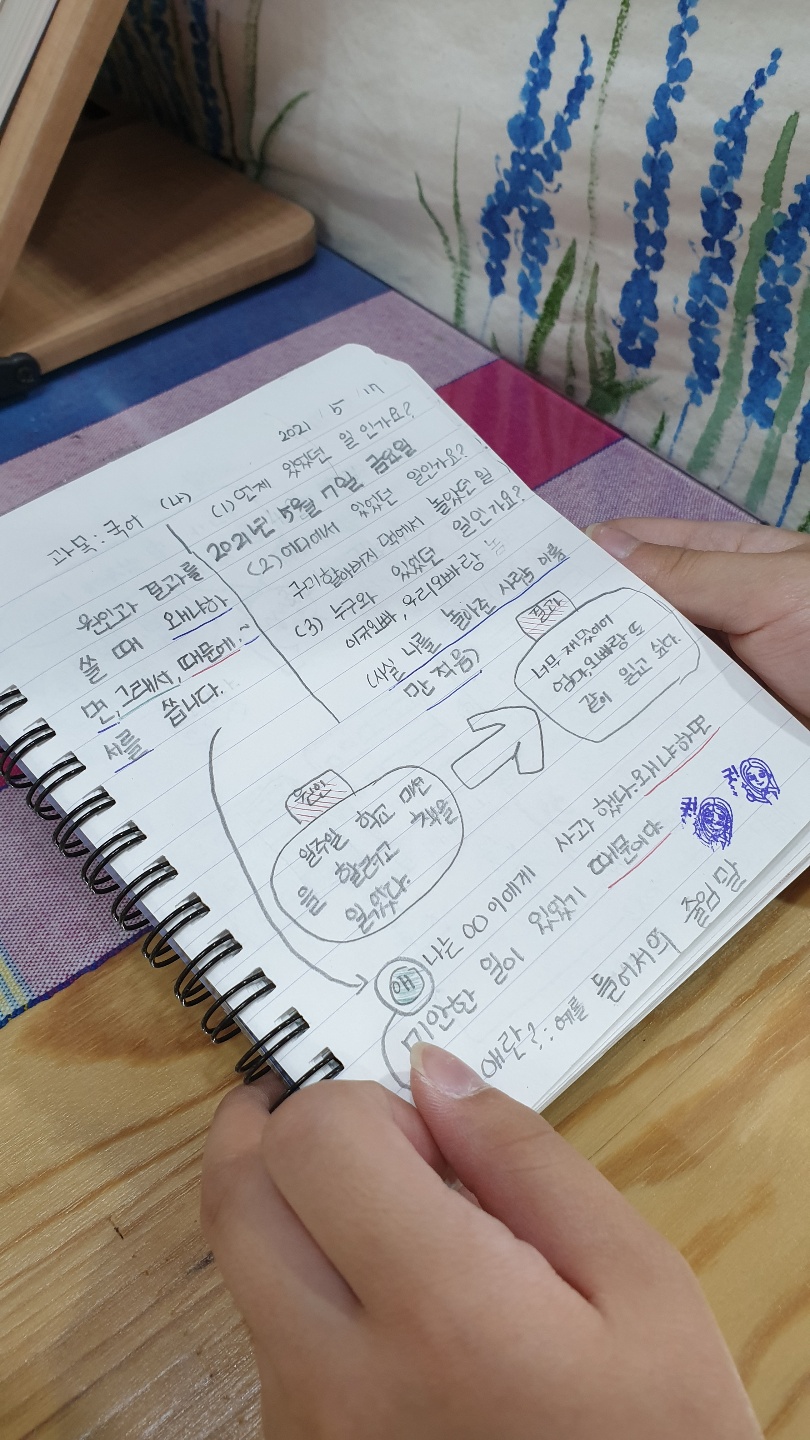 2021 / 5 / 17
과목: 국어 (나)
원인과 결과를
쓸 때 왜냐하
면, 그래서, 때문에 ~
서를 씁니다.
(1) 언제 있었던 일 인가요?
2021년 5월 7일 금요일
(2) 어디에서 있었던 일인가요?
구미할아버지 댁에서 놀았던 일
(3) 누구와 있었던 일인가요?
이규오빠, 우리오빠랑 놈
(사실 나를 놀아준 사람 이름
만 적음)
원인
일주일 학교 미션
을 할려고 책을
읽었다.
결과
너무 재밌어서
엄마,오빠랑 또
같이 읽고 싶다.
애
나는 OO이에게 사과 했다. 왜냐하면
미안한 일이 있었기 때문이야
애란?: 예를 들어서의 줄임말